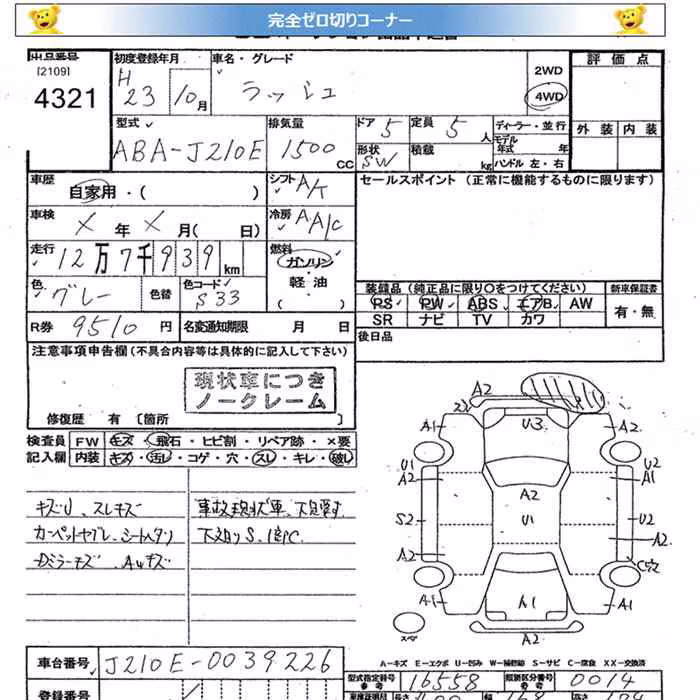 完全ゼロ切りコーナー
出品番号
[2109]
4321
初度登録年月
H
23 10月
車名・グレード
ラッシュ
2WD
4WD
評価点
外装 内装
型式
ABA-J210E
排気量
1500
CC
ドア 5
形状
SW
定員 5
人
積載
kg
ディーラー・並行
モデル
年式 年
ハンドル 左・右
車歴
自家用・( )
シフト
A/t
セールスポイント (正常に機能するものに限ります)
車検
X 年 X 月( 日)
冷房
AA/C
走行
12万7千939
km
燃料
ガソリン
軽・油
( )
色
グレー
色替
色コード
S33
装備品 (純正品に限り○をつけてください)
PS PW ABS エアB AW
SR ナビ TV カワ
新車保証書
有・無
R券 9510円
名変通知期限 月 日
後日品
注意事項申告欄 (不具合内容等は具体的に記入して下さい)
現状車につき
ノークレーム
修復歴 有 [箇所 ]
検査員
記入欄
FW キズ・飛石・ヒビ割・リペア跡・×要
内装 キズ・汚し・コゲ・穴・スレ・キレ・破し
キズU、スレキズ
カーペットヤブレ、シートヘタリ
Dミラーキズ、AWキズ
事故現状車、下見要す
下廻りS、1部C
A2
A1
U3
A2
U1
A2
U2
A1
A2
S2
U1
U2
A2
A2
A1
A1
A1
スペ
A2
A-キズ E-エクボ U-凹み W-補修跡 S-サビ C-腐食 XX-交換済
車台番号 J210E-0039226
型式指定番号
16558
類別区分番号
0014
登録番号
長さ
幅
高さ